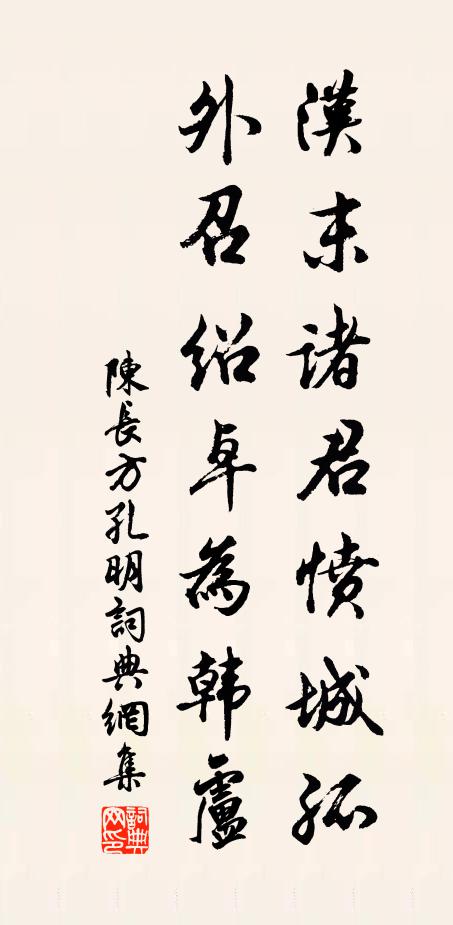 漢末諸君憤城狐
外召紹卓為韓盧
陳長方孔明詞典網集
詞典网印